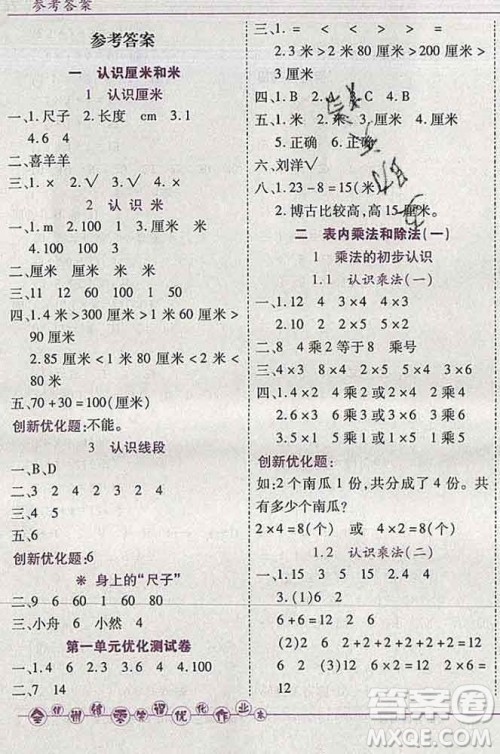 参考答案
参考答案
一 认识厘米和米
1 认识厘米
一、1.尺子 2.长度 cm 3.1
4.6 4
二、喜羊羊
三、1.× 2.√ 3.√ 4.×
2 认识米
一、1.m 2.100 1 3.1
4.100 100 3
二、厘米 厘米 厘米 米
三、
四、1.4米>300厘米>1米>100厘米
2.85厘米<1米80厘米<2米
五、70+30=100(厘米)
创新优化题:不能。
3 认识线段
一、B、D
三、4 3 2 2 4 2
五、6
创新优化题:6
※ 身上的“尺子”
二、9 6 60 1 60 80
三、小舟 小然 4
第一单元优化测试卷
一、1.4 6 2.3 6 4.100
二、7 14
三、1.> = < < < >
2.3米>2米80厘米>200厘米>
四、1.B 2.
五、1.米
5.正确 6.正确
六、刘洋√
八、1.23-8=15(米)
2.博古比较高,高15厘米。
二 表内乘法和除法(一)
1 乘法的初步认识
1.1 认识乘法(一)
一、1.12 4 3 3×4 4×3
2.10 2 5 5×2 2×5
二、8 4乘2等于8 乘号
三、4×3 3×4 2×6 6×2
四、1.4×2 4乘2或2×4 2乘4
2.5×4 5乘4或4×5 4乘5
创新优化题:
如:2个南瓜1份,共分成了4份。共
有多少个南瓜?
2×4=8(个) 或 4×2=8(个)
1.2 认识乘法(二)
一、1.
3.(1)6 2
6+6=12 6 2
(2)2+2+2+2+2+2=
12